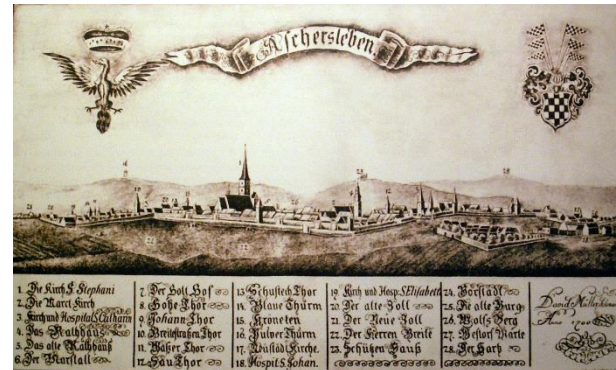 Aschersleben.
1. Die Kirch S. Stephani
2. Die Marct Kirch
3. Kirch und Hospital S. Catharin
4. Das Rathhaus
5. Das alte Rathhaus
6. Der Marstall
7. Der Holl Hof
8. Hohe Thor
9. Johann Thor
10. Breitestraßen Thor
11. Waßer Thor
12. Säu Thor
13. Schmidech Thor
14. Blaue Thürm
15. Kroneten
16. Pulver Thürm
17. Neustäd Kirche.
18. Hospit S. Johan.
19. Kirch und Hosp. S. Elisabeth
20. Der alte Zoll
21. Der Neue Zoll
22. Der Herren Breite
23. Schützen Hauß
24. Vorstädt
25. Die alte Burg
26. Wolfs Berg
27. Westorf Warte
28. Der Hartz
David
Anno